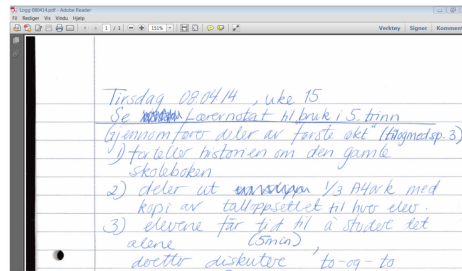 Logg 080414.pdf - Adobe Reader
Fil Rediger Vis Vindu Hjelp
1 / 1 151% Verktøy Signer Komment
Tirsdag 08.04.14, uke 15
Se Lærernotat til bruk i 5. trinn
Gjennomfører deler av første økt" (tilogmed sp. 3)
1) forteller historien om den gamle
skoleboken
2) deler ut 1/3 A4ark med
kopi av talloppsettet til hver elev.
3) elevene får tid til å studere det
alene (5min)
dretter diskutere to-og-to